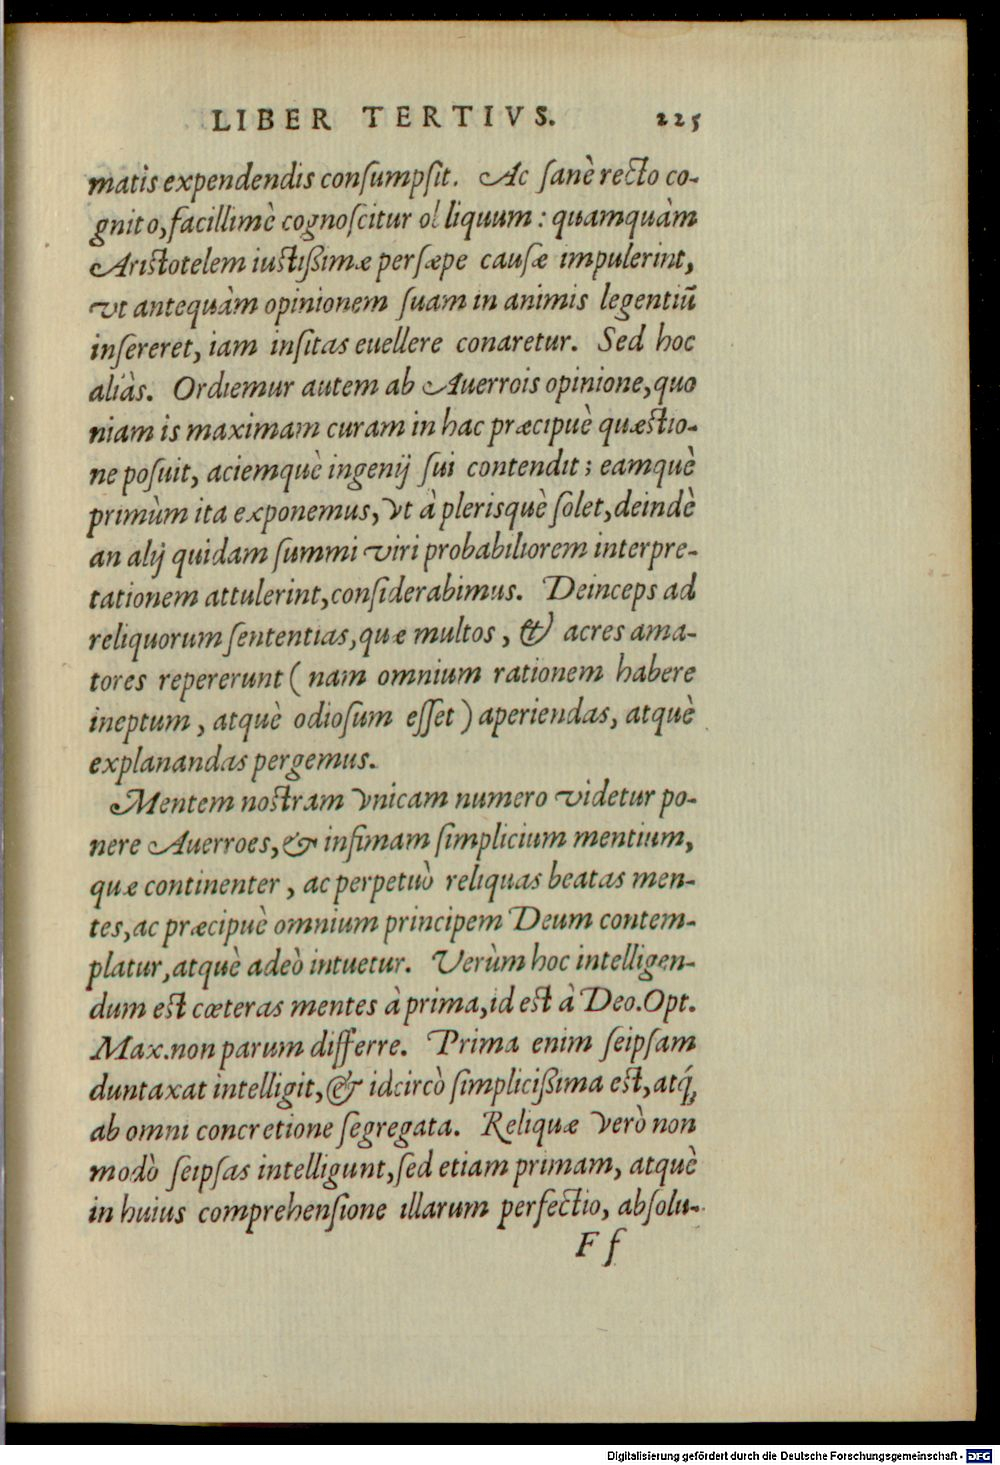 LIBER TERTIVS. 225
matis expendendis conſumpſit. Ac ſanè recto co-
gnito, facillimè cognoſcitur ol liquum: quamquàm
Ariſtotelem iuſtißimæ perſæpe cauſæ impulerint,
vt antequàm opinionem ſuam in animis legentiū
inſereret, iam inſitas euellere conaretur. Sed hoc
aliàs. Ordiemur autem ab Auerrois opinione, quo
niam is maximam curam in hac præcipuè quæſtio-
ne poſuit, aciemquè ingenij ſui contendit; eamquè
primùm ita exponemus, vt à plerisquè ſolet, deindè
an alij quidam ſummi viri probabiliorem interpre-
tationem attulerint, conſiderabimus. Deinceps ad
reliquorum ſententias, quæ multos, & acres ama-
tores repererunt (nam omnium rationem habere
ineptum, atquè odioſum eſſet) aperiendas, atquè
explanandas pergemus.
Mentem noſtram vnicam numero videtur po-
nere Auerroes, & infimam ſimplicium mentium,
quæ continenter, ac perpetuò reliquas beatas men-
tes, ac præcipuè omnium principem Deum contem-
platur, atquè adeò intuetur. Verùm hoc intelligen-
dum eſt cœteras mentes à prima, id eſt à Deo. Opt.
Max. non parum differre. Prima enim ſeipſam
duntaxat intelligit, & idcircò ſimplicißima eſt, atq́;
ab omni concretione ſegregata. Reliquæ verò non
modò ſeipſas intelligunt, ſed etiam primam, atquè
in huius comprehenſione illarum perfectio, abſolu-
F f
Digitalisierung gefördert durch die Deutsche Forschungsgemeinschaft - DFG